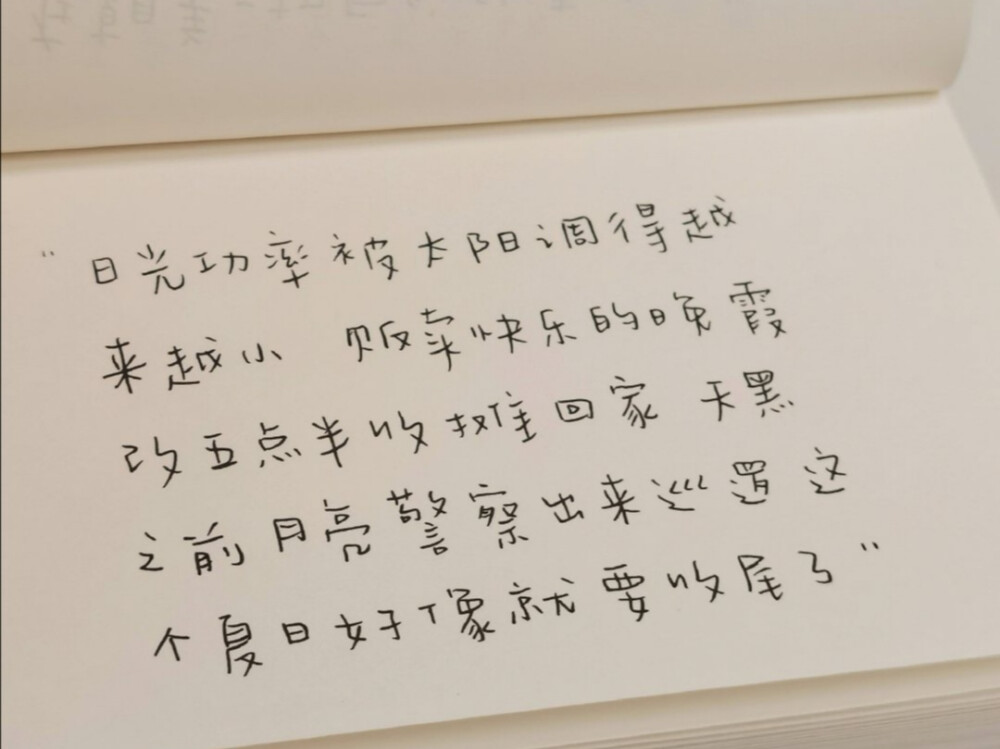 “日光功率被太阳调得越
来越小 贩卖快乐的晚霞
改五点半收摊回家 天黑
之前月亮警察出来巡逻 这
个夏日好像就要收尾了”